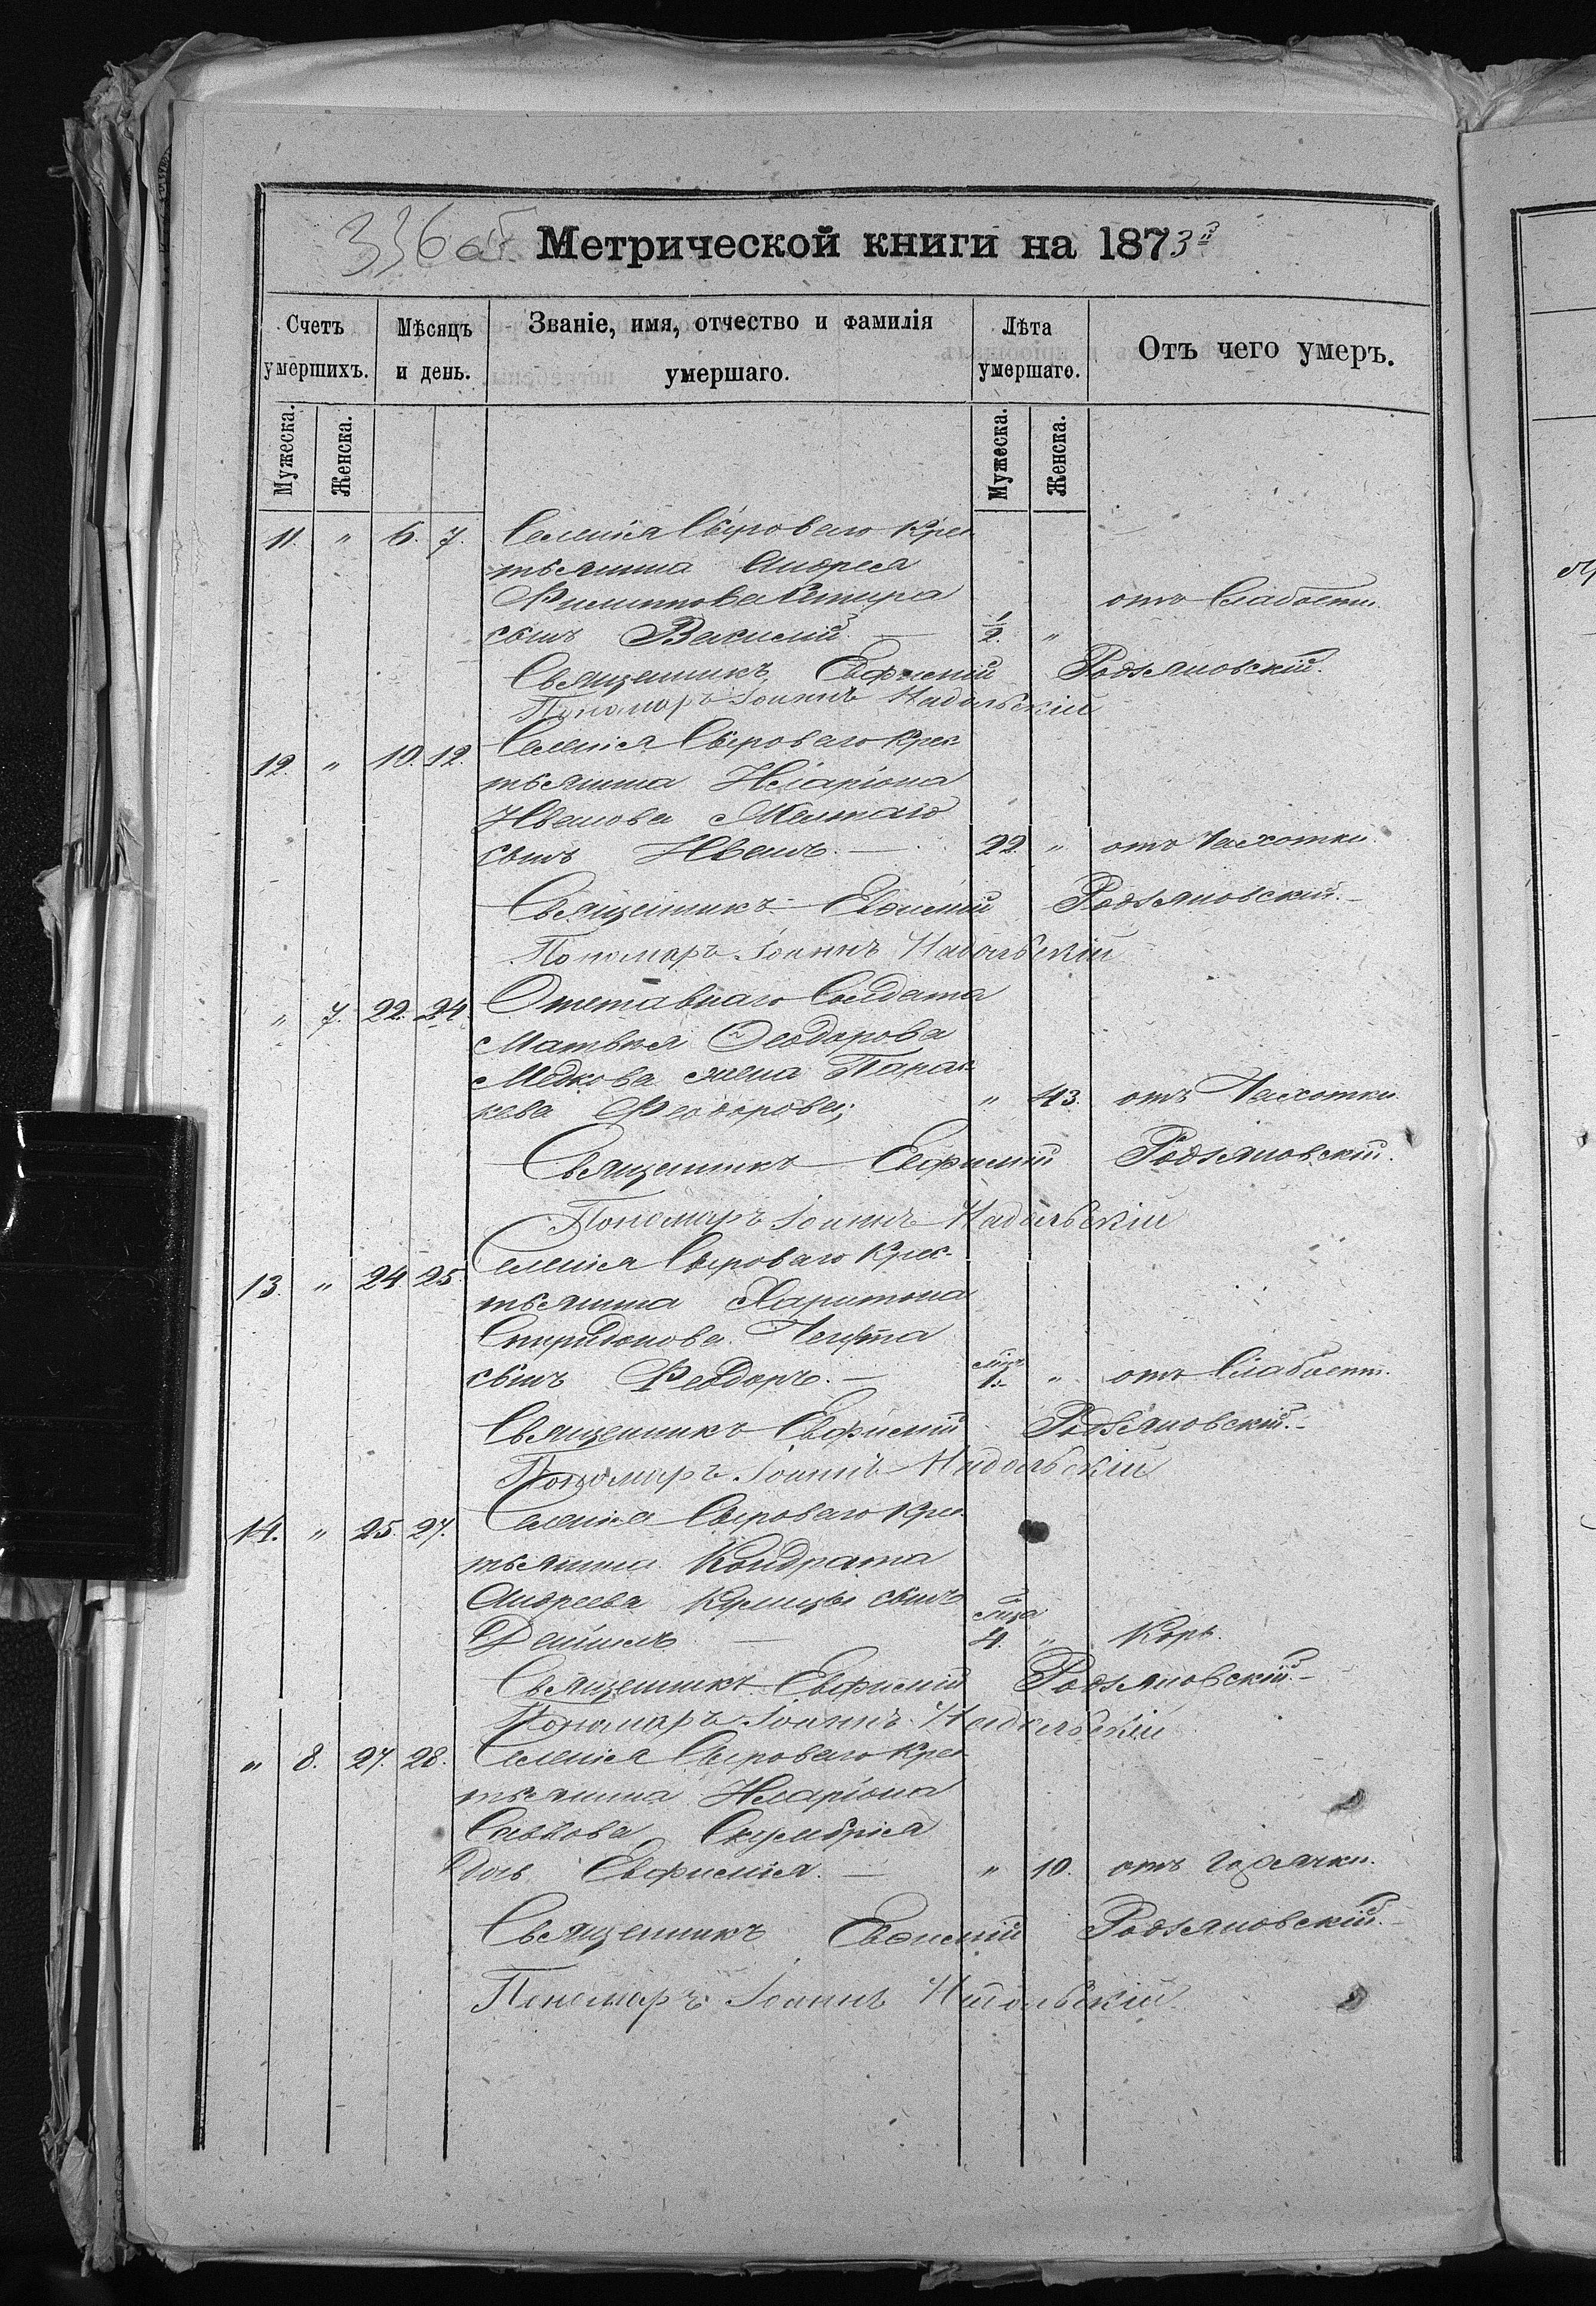 336 об.
Метрической книги на 1873й
Счетъ умершихъ.
Мѣсяцъ и день.
Званіе, имя, отчество и фамилія умершаго.
Лѣта умершаго.
Отъ чего умеръ.
Мужеска.
Женска.
Мужеска.
Женска.
11. " 6. 7. Селенія Сыроваго Крес-
тьянина Андрея
Филиппова
отъ Слабости.
сынъ Василій. — 1/2. "
Священникъ Евфимій Подъяновскій.
Пономаръ Іоаннъ Надольскій
12. " 10. 12. Селенія Сыроваго Крес-
тьянина Иларіона
Иванова
сынъ Иванъ. — 22. " отъ Чахотки.
Священникъ Евѳимій Подъяновскій. —
Пономаръ Іоаннъ Надольскій
" 7. 22. 24. Отставнаго Солдата
Матвѣя Ѳеодорова
Медкова жена Парас-
кева Феодорова; " 43. отъ Чахотки
Священникъ Евфимій Подъяновскій.
Пономаръ Іоаннъ Надольскій
13. " 24 25. Селенія Сыроваго Крес-
тьянина Харитона
Спиридонова
сынъ Феодоръ. — 1. " отъ Слабост.
Священникъ Евфимій Подъяновскій. —
Пономаръ Іоаннъ Надольскій
14. " 25. 27. Селенія Сыроваго Крес-
тьянина Кондрата
Андреева сынъ
Даніилъ — 4. " Корь.
Священникъ Евфимій Подъяновскій. —
Пономаръ Іоаннъ Надольскій
" 8. 27. 28. Селенія Сыроваго Крес-
тьянина Иларіона
Саввова Скумбрія
Дочь Евфимія. — " 10. отъ Горячки.
Священникъ Евѳимій Подъяновскій. —
Пономаръ Іоаннъ Надольскій